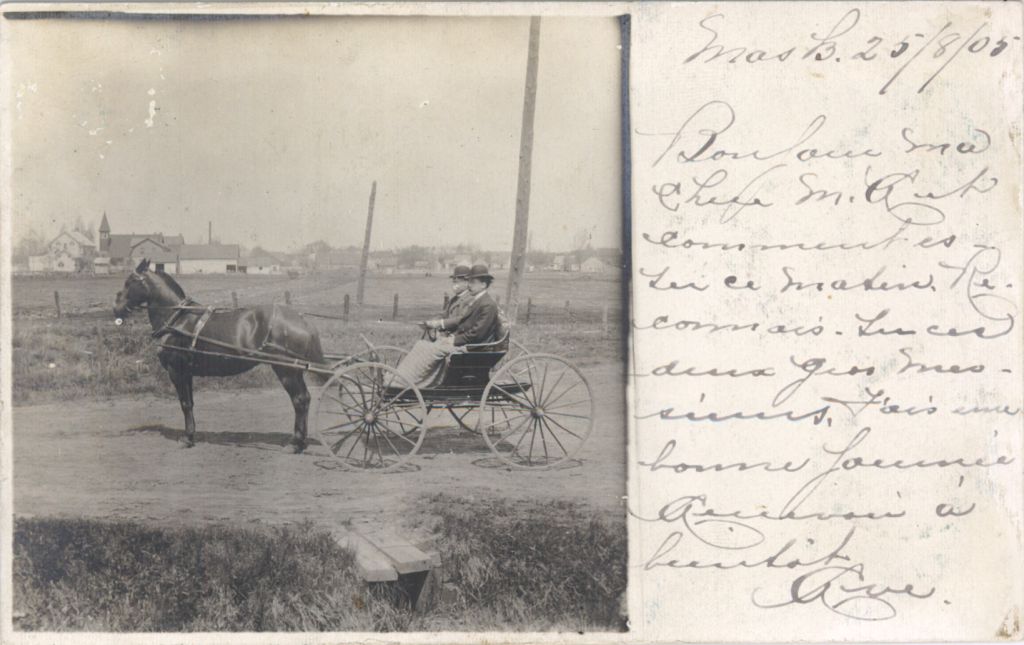 Mask. 25/8/05
Bonjour ma
chere M. A
comment es-
tu ce matin. Re-
connais-tu ces
deux gros mes-
sieurs. Fais une
bonne journée
Aurevoir à
bientot